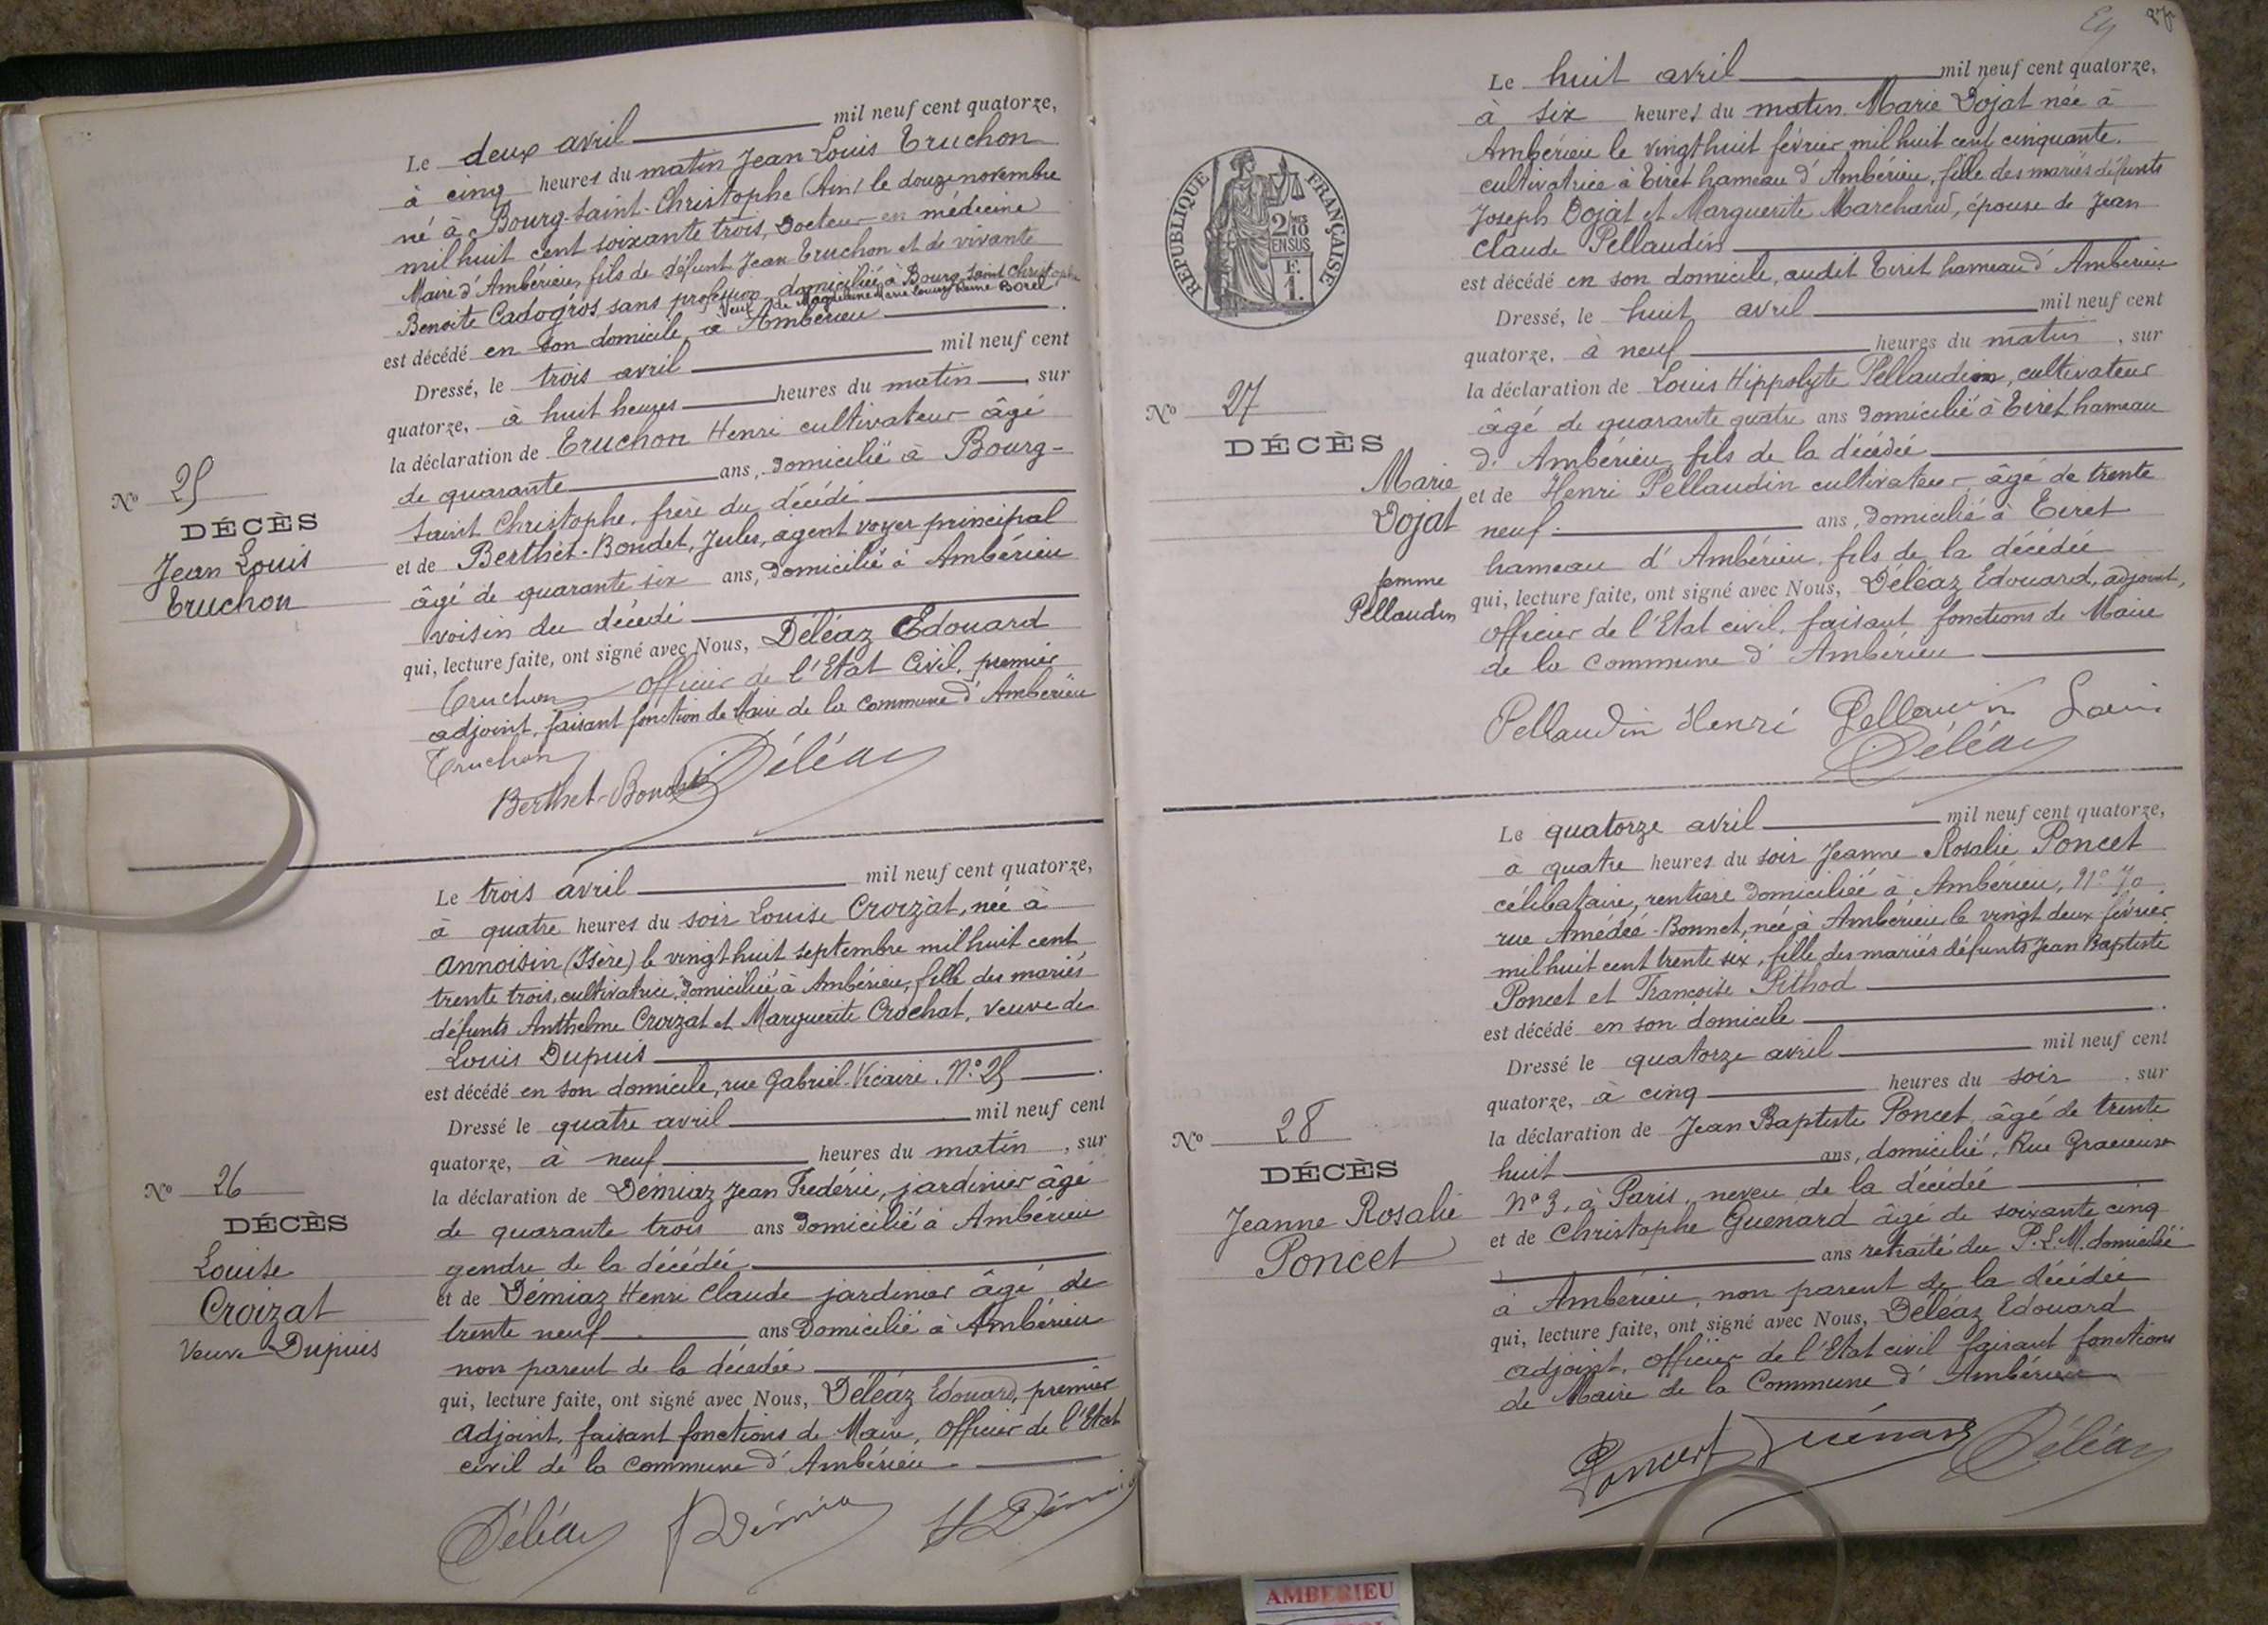 Le deux avril mil neuf cent quatorze,
à cinq heures du matin Jean Louis Truchon
né à Bourg-Saint-Christophe (Ain) le douze novembre
mil huit cent soixante trois, Docteur en médecine
Maire d'Ambérieu, fils de défunt Jean Truchon et de vivante
Benoite Cadogros, sans profession domiciliée à Bourg Saint Christophe
Veuf de Magdeleine Marie Louise Reine Borel
est décédé en son domicile, à Ambérieu
Dressé, le trois avril mil neuf cent
quatorze, à huit heures heures du matin, sur
la déclaration de Truchon Henri cultivateur âgé
de quarante ans, domicilié à Bourg-
Saint Christophe, frère du décédé
et de Berthet-Bondet, Jules, agent voyer principal
âgé de quarante six ans, domicilié à Ambérieu
voisin du décédé
qui, lecture faite, ont signé avec Nous, Déléaz Edouard
Truchon officier de l'Etat Civil, premier
adjoint, faisant fonction de Maire de la commune d'Ambérieu
Truchon Déléaz
Berthet-Bondet
No 25
DÉCÈS
Jean Louis
Truchon
Le trois avril mil neuf cent quatorze,
à quatre heures du soir Louise Croizat, née à
Annoisin (Isère) le vingt-huit septembre mil huit cent
trente trois, cultivatrice, domiciliée à Ambérieu, fille des mariés
défunts Anthelme Croizat et Marguerite Crochat, veuve de
Louis Dupuis
est décédé en son domicile, rue Gabriel-Vicaire, N° 25
Dressé le quatre avril mil neuf cent
quatorze, à neuf heures du matin, sur
la déclaration de Démiaz Jean Frédéric, jardinier âgé
de quarante trois ans domicilié à Ambérieu
gendre de la décédée
et de Démiaz Henri Claude jardinier âgé de
trente neuf ans domicilié à Ambérieu
non parent de la décédée
qui, lecture faite, ont signé avec Nous, Déléaz Edouard, premier
adjoint, faisant fonctions de Maire, officier de l'Etat
civil de la commune d'Ambérieu
Déléaz Démiaz H Démiaz
No 26
DÉCÈS
Louise
Croizat
Veuve Dupuis
87
RÉPUBLIQUE FRANÇAISE
2/10
EN SUS
F.
1.
Le huit avril mil neuf cent quatorze,
à six heures du matin Marie Dojat née à
Ambérieu le vingt huit février mil huit cent cinquante,
cultivatrice à Tiret hameau d'Ambérieu, fille des mariés défunts
Joseph Dojat et Marguerite Marchand, épouse de Jean
Claude Pellaudin
est décédé en son domicile, audit Tiret hameau d'Ambérieu
Dressé, le huit avril mil neuf cent
quatorze, à neuf heures du matin, sur
la déclaration de Louis Hippolyte Pellaudin, cultivateur
âgé de quarante quatre ans domicilié à Tiret hameau
d'Ambérieu, fils de la décédée
et de Henri Pellaudin cultivateur âgé de trente
neuf ans, domicilié à Tiret
hameau d'Ambérieu, fils de la décédée
qui, lecture faite, ont signé avec Nous, Déléaz Edouard, adjoint,
officier de l'Etat civil, faisant fonctions de Maire
de la commune d'Ambérieu
Pellaudin Henri Pellaudin Louis
Déléaz
No 27
DÉCÈS
Marie
Dojat
femme
Pellaudin
Le quatorze avril mil neuf cent quatorze,
à quatre heures du soir Jeanne Rosalie Poncet
célibataire, rentière domiciliée à Ambérieu, N° 70
rue Amédée-Bonnet, née à Ambérieu le vingt deux février
mil huit cent trente six, fille des mariés défunts Jean Baptiste
Poncet et Françoise Pithod
est décédé en son domicile
Dressé le quatorze avril mil neuf cent
quatorze, à cinq heures du soir, sur
la déclaration de Jean Baptiste Poncet, âgé de trente
huit ans, domicilié, Rue Gracieuse
N° 3, à Paris, neveu de la décédée
et de Christophe Guenard âgé de soixante cinq
ans retraité du P.L.M. domicilié
à Ambérieu, non parent de la décédée
qui, lecture faite, ont signé avec Nous, Déléaz Edouard
adjoint, officier de l'Etat civil faisant fonctions
de Maire de la Commune d'Ambérieu
Poncet Guénard Déléaz
No 28
DÉCÈS
Jeanne Rosalie
Poncet
AMBERIEU